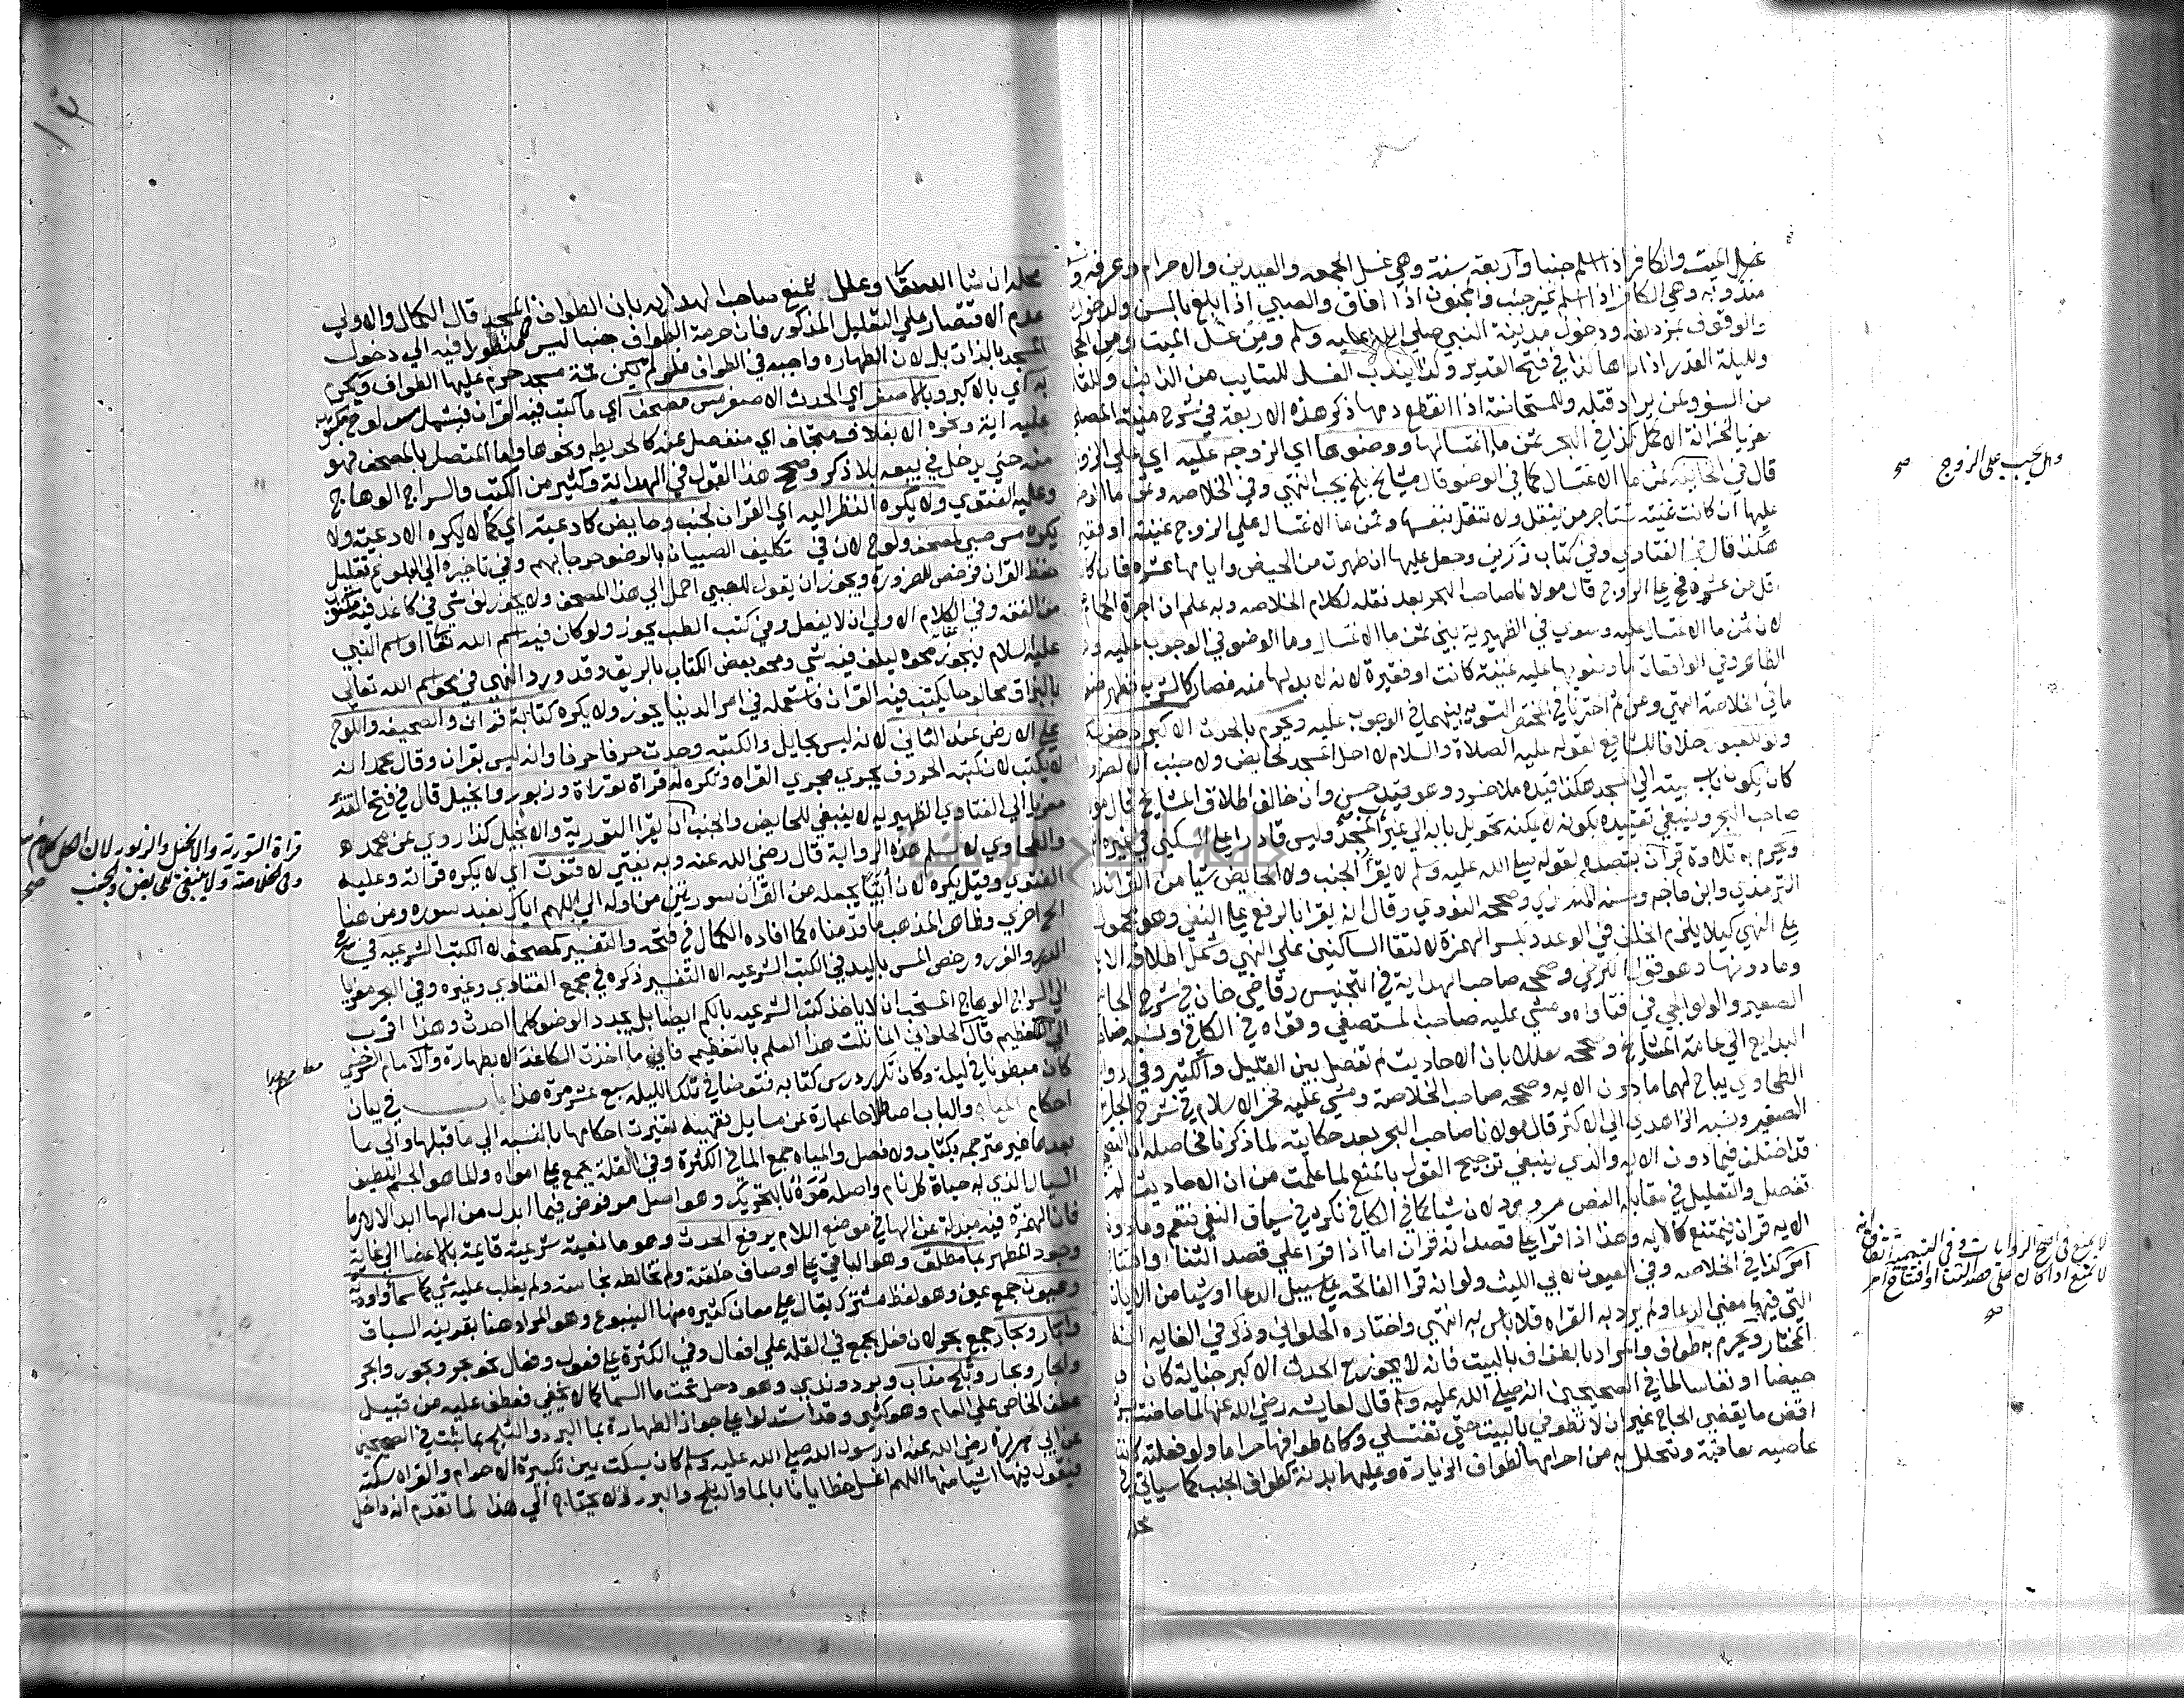 غسل الميت والكافر اذا اسلم جنبا واربعة سنة وهي غسل الجمعه والعيدين والاحرام وعرفه و
مندوبة وهي الكافر اذا اسلم غير جنب والمجنون اذا افاق والصبي اذا بلغ بالسن ولدخول
والوقوف بمزدلفه ودخول مدينة النبي صلي الله عليه وسلم ومن غسل الميت ومن
وليلة القدر اذا راها كذا في فتح القدير وكذا يندب الغسل للتايب من الذنب و
من السفر ولمن يراد قتله وللمستحاضة اذا انقطع دمها ذكر هذه الاربعة في شرح منية المصلي
معزيا لخزانة الاكمل كذا في البحر ثمن ما اغتسالها ووضوها اي الزوجه عليه اي علي الزوج
قال في الخانيه ثمن ما الاغتسال كما في الوضو قال مشايخ بلخ يجب انتهي وفي الخلاصه وثمن ما الوضو
عليها ان كانت غنية تستاجر من ينقل ولا تنقل بنفسها وثمن ما الاغتسال علي الزوج غنية او فقيرة
هكذا قال في الفتاوي وفي كتاب رزين وجعل عليها ان طهرت من الحيض وايامها عشره فان كانت
اقل من عشره فعلي الزوج قال مولانا صاحب البحر بعد نقله لكلام الخلاصه وبه علم ان اجرة الحمام
لان ثمن ما الاغتسال عليه وسوي في الظهيرية بين ثمن ما الاغتسال وما الوضو في الوجوب عليه
الظاهر وفي الواقعات ما وضويها عليه غنية كانت او فقيرة لانه لا بد لها منه فصار كالشرب
ما في الخلاصة انتهي ومن ثم اخترنا في المختصر التسويه بينهما في الوجوب عليه ويحرم بالحدث الاكبر دخول
ولو للعبور خلافا للشافعي لقوله عليه الصلاة والسلام لا احل المسجد لحايض ولا جنب الا لضرورة
كان يكون باب بيته الي المسجد هكذا قيده ملا خسرو وهو قيد حسن وان خالف اطلاق المشايخ قال
صاحب البحر وينبغي تقييده بكونه لا يمكنه تحويل بابه الي غير المسجد وليس قادرا علي السكني في غيره
ويحرم به تلاوة قرآن بقصده لقوله صلي الله عليه وسلم لا يقرأ الجنب ولا الحايض شيا من القران
الترمذي وابن ماجه وحسنه المنذري وصححه النووي وقال انه يقرا بالرفع علي النفي وهو محمول
علي النهي كيلا يلزم الخلف في الوعد وبكسر الهمزة لالتقا الساكنين علي النهي وشمل اطلاقه الاية
وما دونها وهو قول الكرخي وصححه صاحب الهداية في التجنيس وقاضي خان في شرح الجامع
الصغير والولوالجي في فتاواه ومشي عليه صاحب المستصفي وقواه في الكافي ونسبه صاحب
البدايع الي عامة المشايخ وصححه معللا بان الاحاديث لم تفصل بين القليل والكثير وفي رواية
الطحاوي يباح لهما ما دون الايه وصححه صاحب الخلاصة ومشي عليه فخر الاسلام في شرح الجامع
الصغير ونسبه الزاهدي الي الاكثر قال مولانا صاحب البحر بعد حكايته لما ذكرنا فحاصله ان التصحيح
قد اختلف فيما دون الايه والذي ينبغي ترجيح القول بالمنع لما علمت من ان الاحاديث لم
تفصل والتعليل في مقابلة النص مردود لان شيا كما في الكافي نكرة في سياق النفي فتعم وما دون
الايه قران فيمتنع كالايه وهذا اذا قرا علي قصد انه قران اما اذا قرا علي قصد الثنا او افتتاح
امر كذا في الخلاصه وفي العيون لابي الليث ولو انه قرا الفاتحه علي سبيل الدعا او شيا من الايات
التي فيها معني الدعا ولم يرد به القراه فلا باس به انتهي واختاره الحلواني وذكر في الغايه انه
المختار ويحرم به طواف والمراد بالطواف بالبيت فانه لا يجوز مع الحدث الاكبر جنابة كان او
حيضا او نفاسا لما في الصحيحين انه صلي الله عليه وسلم قال لعايشه رضي الله عنها لما حاضت بسرف
اقض ما يقضي الحاج غير ان لا تطوفي بالبيت حتي تغتسلي وكان طوافها حراما ولو فعلته كانت
عاصيه معاقبة وتتحلل به من احرامها لطواف الزيارة وعليها بدنة كطواف الجنب كما سياتي في
محله
وهل يجب علي الزوج صح
لا يمنع في اصح الروايات وفي اليتيمة اتفاق انه
لا يمنع اذا كان علي قصد الثنا او افتتاح امر
صح
محله ان شا الله تعالي وعلل لمنع صاحب الهدايه بان الطواف في المسجد قال الكمال والاولي
عدم الاقتصار علي التعليل المذكور فان حرمة الطواف جنبا ليس منظورا فيه الي دخول
المسجد بالذات بل لان الطهاره واجبه في الطواف فلو لم يكن ثمة مسجد حرم عليها الطواف ويحرم
به اي بالاكبر وبالاصغر اي الحدث الاصغر مس مصحف اي ما كتب فيه القران فيشمل مس لوح مكتوب
عليه اية ونحوه الا بغلاف متجاف اي منفصل عنه كالخريطه ونحوها واما المتصل بالمصحف فهو
منه حتي يدخل في بيعه بلا ذكر وصحح هذا القول في الهداية وكثير من الكتب والسراج الوهاج
وعليه الفتوي ولا يكره النظر اليه اي القران لجنب وحايض كادعية اي كما لا يكره الادعية ولا
يكره مس صبي لمصحف ولوح لان في تكليف الصبيان بالوضو حرجا بهم وفي تاخيره الي البلوغ تقليل
حفظ القران فرخص للضرورة ويجوز ان يقول للصبي احمل الي هذا المصحف ولا يجوز لف شي في كاغد فيه مكتوب
من الفقه وفي الكلام الاولي ان لا يفعل وفي كتب الطب يجوز ولو كان فيه اسم الله تعالي او اسم النبي
عليه السلام يجوز محوه ليلف فيه شي ومحو بعض الكتاب بالريق وقد ورد النهي في محو اسم الله تعالي
بالبزاق محا لوحا يكتب فيه القران فاستعمله في امر الدنيا يجوز ولا يكره كتابة قران والصحيفه واللوح
علي الارض عند الثاني لانه ليس بحايل والكتبه وجدت حرفا حرفا وانه ليس بقران وقال محمد انه
لا يكتب لان كتبه الحروف يجري مجري القراه وتكره له قراة توراة وزبور وانجيل قال في فتح القدير
معزيا الي الفتاوي الظهيريه لا ينبغي للحايض والجنب ان يقرا التورية والانجيل كذا روي عن محمد
والطحاوي لا يسلم هذه الرواية قال رضي الله عنه وبه يفتي لا قنوت اي لا يكره قراته وعليه
الفتوي وقيل يكره لان ابيا يجعله من القران سورتين من اوله الي اللهم اياك نعبد سوره ومن هنا
الي اخري وظاهر المذهب ما قدمناه كما افاده الكمال في فتحه والتفسير كمصحف لا الكتب الشرعيه في شرح
الدرر والغرر ورخص المس باليد في الكتب الشرعيه الا التفسير ذكره في مجمع الفتاوي وغيره وفي البحر معزيا
الي السراج الوهاج المستحب ان لا ياخذ كتب الشرعيه بالكم ايضا بل يجدد الوضو كلما احدث وهذا اقرب
الي التعظيم قال الحلواني انما نلت هذا العلم بالتعظيم فاني ما اخذت الكاغد الا بطهارة والامام السرخسي
كان مبطونا في ليلة وكان تكرر درس كتابه فتوضا في تلك الليله سبع عشر مرة هذا باب في بيان
احكام المياه والباب اصطلاحا عبارة عن مسايل فقهيه تغيرت احكامها بالنسبه الي ما قبلها والي ما
بعدها غير مترجمه بكتاب ولا فصل والمياه جمع الما في الكثرة وفي القلة يجمع علي امواه والما هو الجسم اللطيف
السيال الذي به حياة كل نام واصله مَوَهٌ بالتحريك وهو اصل مرفوض فيما ابدل من الها ابدالا لازما
فان الهمزة فيه مبدلة عن الها في موضع اللام يرفع الحدث وهو ما نعية شرعية قايمة بالاعضا الي غاية
وجود المطهر بما مطلق وهو الباقي علي اوصاف خلقته ولم تخالطه نجاسة ولم يغلب عليه شي كما سما واودية
وعيون جمع عين وهو لفظ مشترك يقال علي معان كثيره منها الينبوع وهو المراد هنا بقرينه السياق
وابار وبحار جمع بحر لان فعل يجمع في القله علي افعال وفي الكثرة علي فعول وفعال نحو بحر وبحور وابحر
وابحار وبحار وثلج مذاب وبرد وندي وهو دخل تحت ما السما كما لا يخفي فعطف عليه من قبيل
عطف الخاص علي العام وهو كثير وقد استدلوا علي جواز الطهارة بما البرد والثلج بما ثبت في الصحيحين
عن ابي هريرة رضي الله عنه ان رسول الله صلي الله عليه وسلم كان يسكت بين تكبيرة الاحرام والقراه سكتة
فيقول فيها اشيا منها اللهم اغسل خطايانا بالما والثلج والبرد ولا يحتاج الي هذا لما تقدم انه داخل
قراة التورية والانجيل والزبور لان الكل كلام
وفي الخلاصة ولا ينبغي للحايض والجنب صح